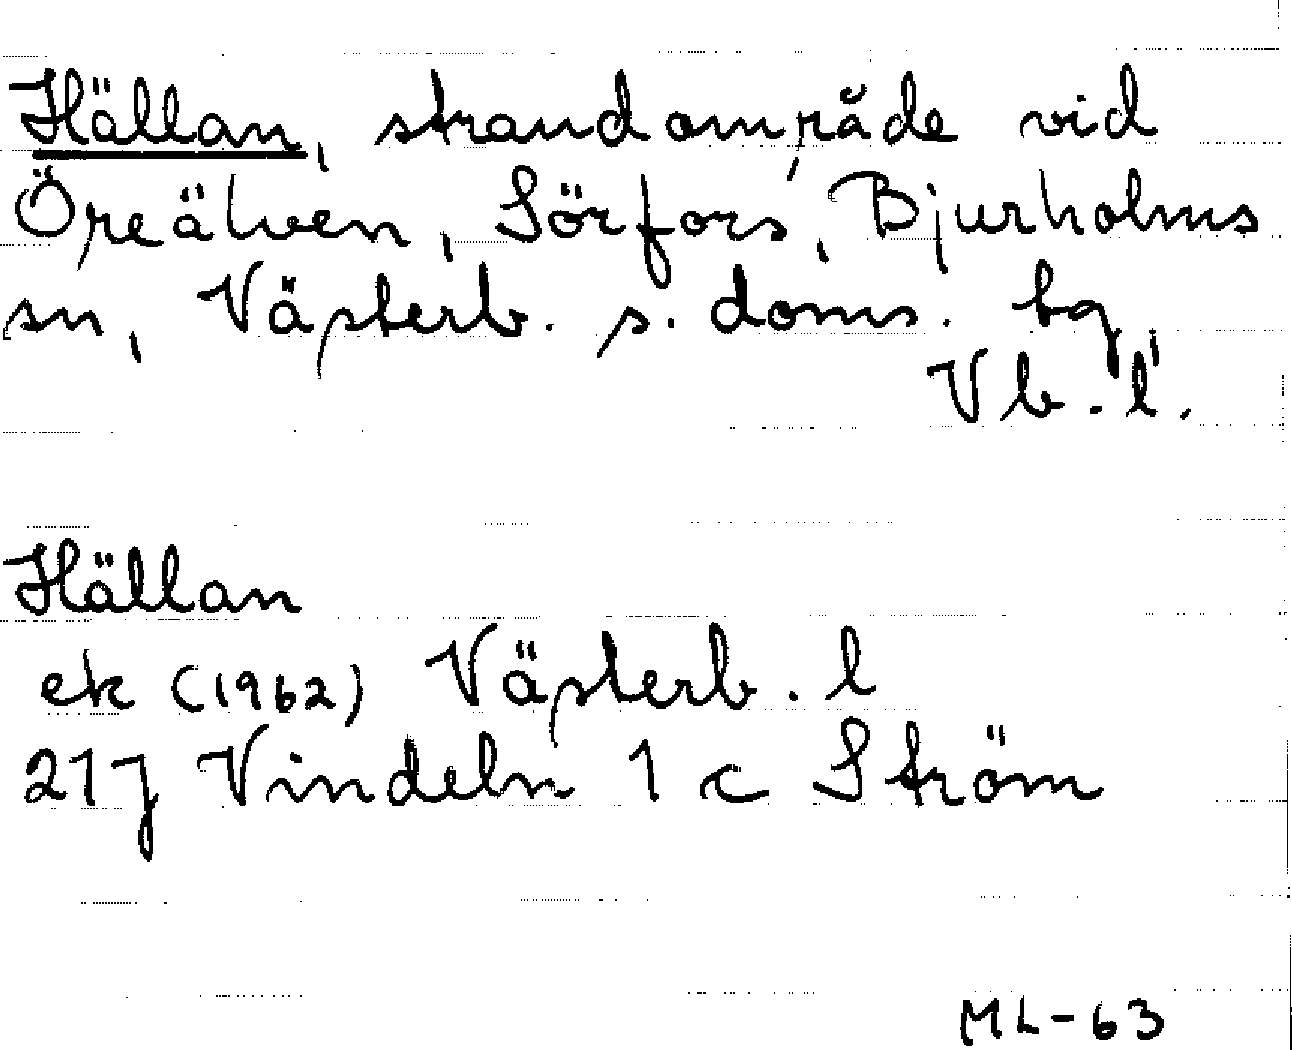 Hällan, strandområde vid
Öreälven, Sörfors, Bjurholms
sn, Västerb. s. doms. tg,
Vb. l.
Hällan
ek (1962) Västerb. l
21J Vindeln 1 c Ström
ML-63